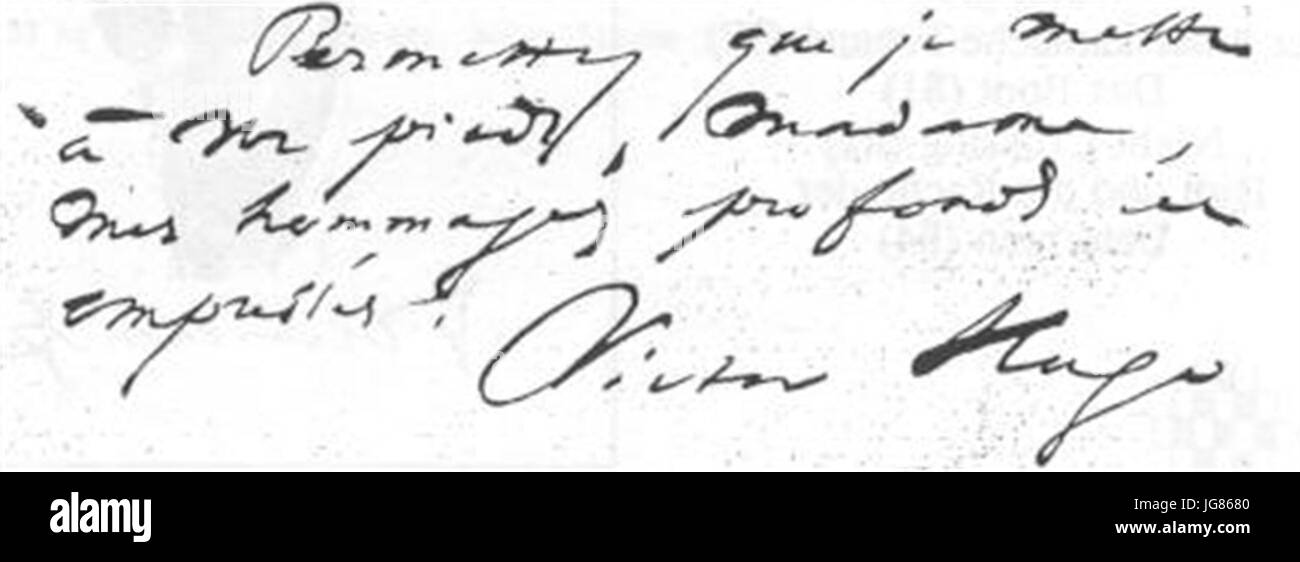 Permettez que je mette
à vos pieds, Madame
mes hommages profonds et
empressés.
Victor Hugo
alamy
JG8680
www.alamy.com